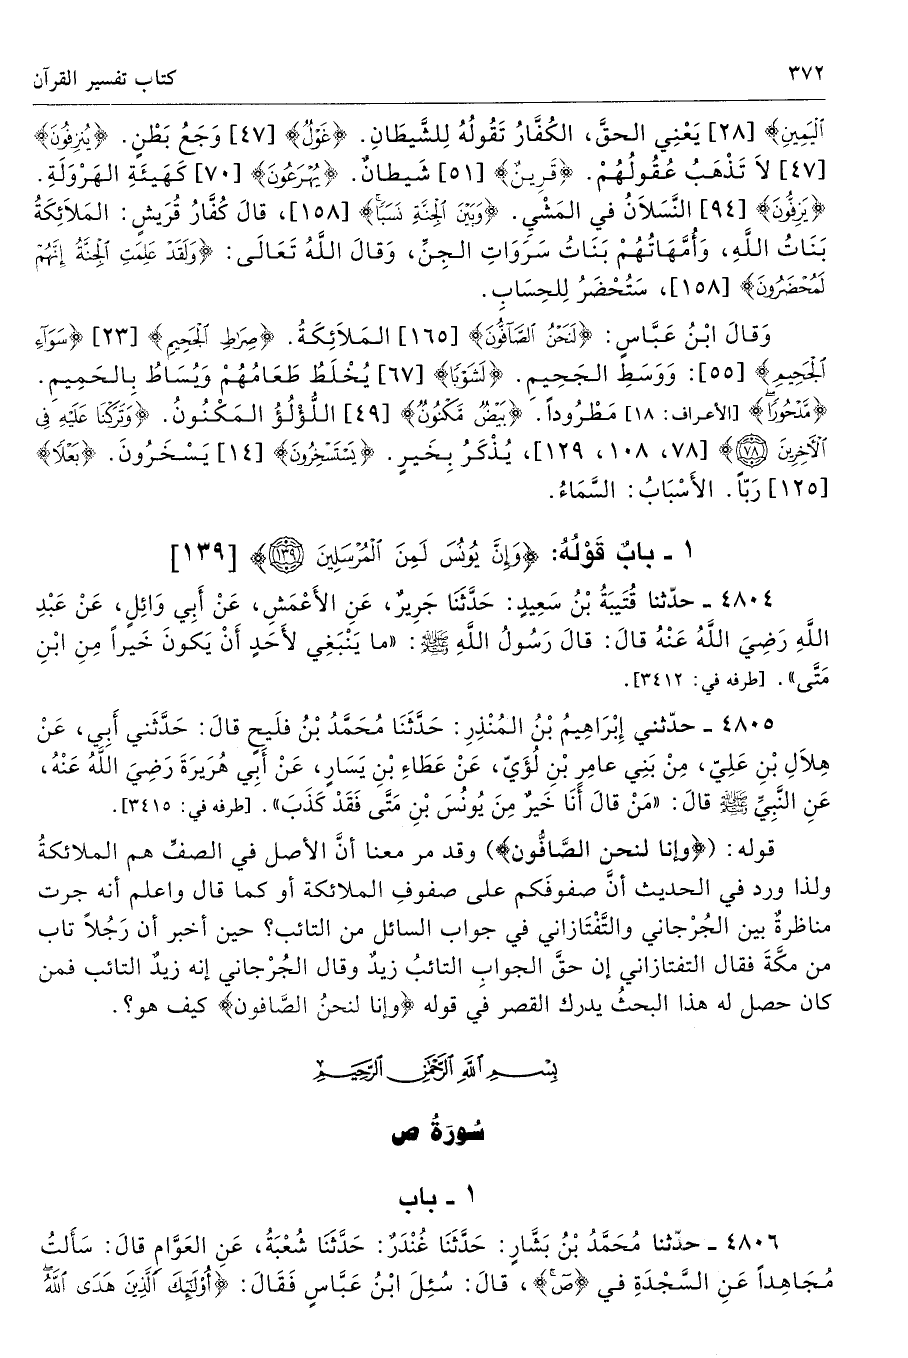 ٣٧٢ كتاب تفسير القرآن
ٱلْيَمِينِ﴾ [٢٨] يَعْنِي الحقَّ، الكُفَّارُ تَقُولُهُ لِلشَّيطَانِ. ﴿غَوْلٌ﴾ [٤٧] وَجَعُ بَطْنٍ. ﴿يُنزَفُونَ﴾
[٤٧] لاَ تَذْهَبُ عُقُولُهُمْ. ﴿قَرِينٌ﴾ [٥١] شَيطانٌ. ﴿يُهْرَعُونَ﴾ [٧٠] كَهَيئَةِ الهَرْوَلَةِ.
﴿يَزِفُّونَ﴾ [٩٤] النَّسَلاَنُ في المَشْيِ. ﴿وَبَيْنَ ٱلْجِنَّةِ نَسَبًاۚ﴾ [١٥٨]، قالَ كُفَّارُ قُرَيشٍ: المَلاَئِكَةُ
بَنَاتُ اللهِ، وَأُمَّهَاتُهُمْ بَنَاتُ سَرَوَاتِ الجِنِّ، وَقالَ اللَّهُ تَعَالَى: ﴿وَلَقَدْ عَلِمَتِ ٱلْجِنَّةُ إِنَّهُمْ
لَمُحْضَرُونَ﴾ [١٥٨]، سَتُحْضَرُ لِلحِسَابِ.
وَقالَ ابْنُ عَبَّاسٍ: ﴿لَنَحْنُ ٱلصَّآفُّونَ﴾ [١٦٥] المَلاَئِكَةُ. ﴿صِرَٰطِ ٱلْجَحِيمِ﴾ [٢٣] ﴿سَوَآءِ
ٱلْجَحِيمِ﴾ [٥٥]: وَوَسَطِ الجَحِيمِ. ﴿لَشَوْبًا﴾ [٦٧] يُخْلَطُ طَعَامُهُمْ وَيُسَاطُ بِالحَمِيمِ.
﴿مَّدْحُورًاۖ﴾ [الأعراف: ١٨] مَطْرُوداً. ﴿بَيْضٌ مَّكْنُونٌ﴾ [٤٩] اللُّؤْلُؤُ المَكْنُونُ. ﴿وَتَرَكْنَا عَلَيْهِ فِى
ٱلْأَخِرِينَ ٧٨﴾ [٧٨، ١٠٨، ١٢٩]، يُذْكَرُ بِخَيرٍ. ﴿يَسْتَسْخِرُونَ﴾ [١٤] يَسْخَرُونَ. ﴿بَعْلًا﴾
[١٢٥] رَبّاً. الأَسْبَابُ: السَّمَاءُ.
١ ـ بابٌ قَوْلُهُ: ﴿وَإِنَّ يُونُسَ لَمِنَ ٱلْمُرْسَلِينَ ١٣٩﴾ [١٣٩]
٤٨٠٤ ـ حدّثنا قُتَيبَةُ بْنُ سَعِيدٍ: حَدَّثَنَا جَرِيرٌ، عَنِ الأَعْمَشِ، عَنْ أَبِي وَائِلٍ، عَنْ عَبْدِ
اللَّهِ رَضِيَ اللَّهُ عَنْهُ قالَ: قالَ رَسُولُ اللَّهِ ﷺ: «ما يَنْبَغِي لأَحَدٍ أَنْ يَكونَ خَيراً مِنِ ابْنِ
مَتَّى». [طرفه في: ٣٤١٢].
٤٨٠٥ ـ حدّثني إِبْرَاهِيمُ بْنُ المُنْذِرِ: حَدَّثَنَا مُحَمَّدُ بْنُ فلَيحٍ قالَ: حَدَّثَني أَبِي، عَنْ
هِلاَلِ بْنِ عَلِيٍّ، مِنْ بَنِي عامِرِ بْنِ لُؤَيٍّ، عَنْ عَطَاءِ بْنِ يَسَارٍ، عَنْ أَبِي هُرَيرَةَ رَضِيَ اللَّهُ عَنْهُ،
عَنِ النَّبِيِّ ﷺ قالَ: «مَنْ قالَ أَنَا خَيرٌ مِنَ يُونُسَ بْنِ مَتَّى فَقَدْ كَذَبَ». [طرفه في: ٣٤١٥].
قوله: (﴿وإنا لنحن الصَّافُّون﴾) وقد مر معنا أنَّ الأصل في الصفِّ هم الملائكةُ
ولذا ورد في الحديث أنَّ صفوفَكم على صفوفِ الملائكة أو كما قال واعلم أنه جرت
مناظرةٌ بين الجُرْجاني والتَّفْتَازاني في جواب السائل من التائب؟ حين أخبر أن رَجُلاً تاب
من مكَّةَ فقال التفتازاني إن حقَّ الجوابِ التائبُ زيدٌ وقال الجُرْجاني إنه زيدٌ التائب فمن
كان حصل له هذا البحثُ يدرك القصر في قوله ﴿وإنا لنحنُ الصَّافون﴾ كيف هو؟.
بِسْمِ ٱللَّهِ ٱلرَّحْمَٰنِ ٱلرَّحِيمِ
سُورَةُ ص
١ ـ باب
٤٨٠٦ ـ حدّثنا مُحَمَّدُ بْنُ بَشَّارٍ: حَدَّثَنَا غُنْدَرٌ: حَدَّثَنَا شُعْبَةُ، عَنِ العَوَّامِ قالَ: سَأَلتُ
مُجَاهِداً عَنِ السَّجْدَةِ في ﴿صٓۚ﴾، قالَ: سُئِلَ ابْنُ عَبَّاسٍ فَقَالَ: ﴿أُوْلَٰٓئِكَ ٱلَّذِينَ هَدَى ٱللَّهُۖ